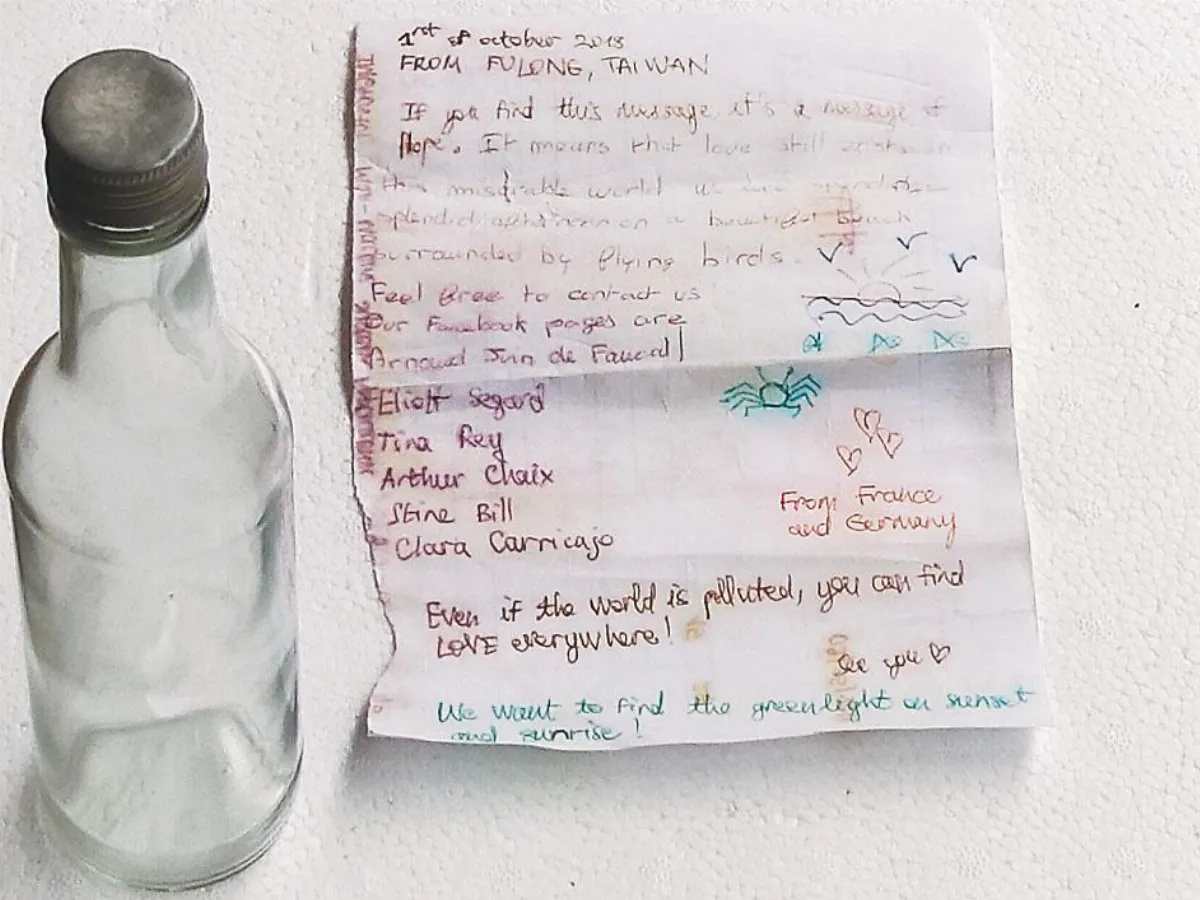 1rst of october 2018
FROM FULONG, TAIWAN
If you find this message, it's a message of
Hope. It means that love still exists in
this misérable world
splendid afternoon on a beautiful beach
surrounded by flying birds.
Feel free to contact us
Our Facebook pages are
Arnaud Juin de
Eliott Segard
Tina Rey
Arthur Chaix
Stine Bill
Clara Carricajo
From France
and Germany
Even if the world is polluted, you can find
LOVE everywhere!
See you
We want to find the greenlight on sunset
and sunrise!